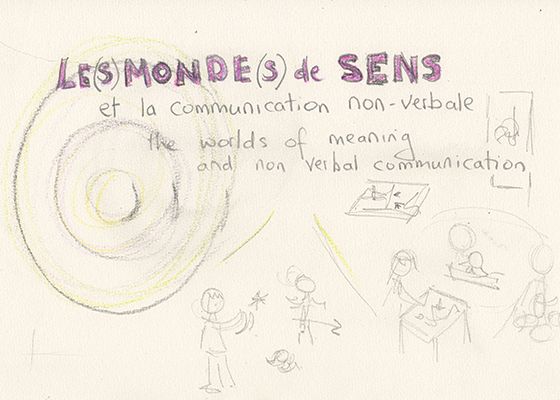 LE(S) MONDE(S) de SENS
et la communication non-verbale
the worlds of meaning
and non verbal communication